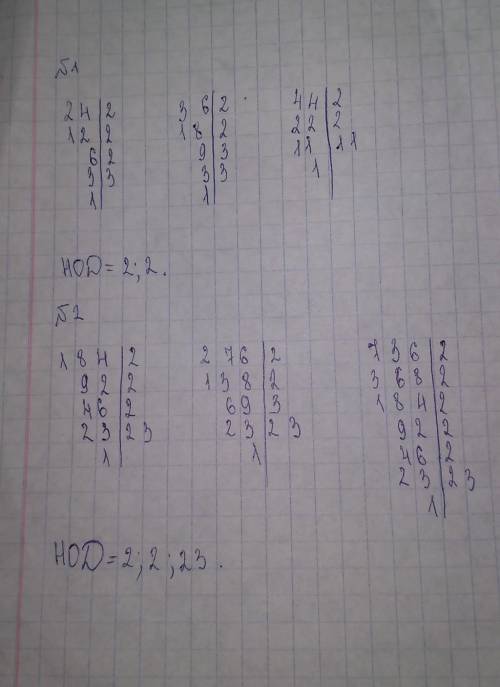 №1
24|2 36|2 44|2
12|2 18|2 22|2
6|2 9|3 11|11
3|3 3|3 1|
1| 1|
НОД=2;2.
№2
184|2 276|2 736|2
92|2 138|2 368|2
46|2 69|3 184|2
23|23 23|23 92|2
1| 1| 46|2
23|23
1|
НОД=2;2;23.